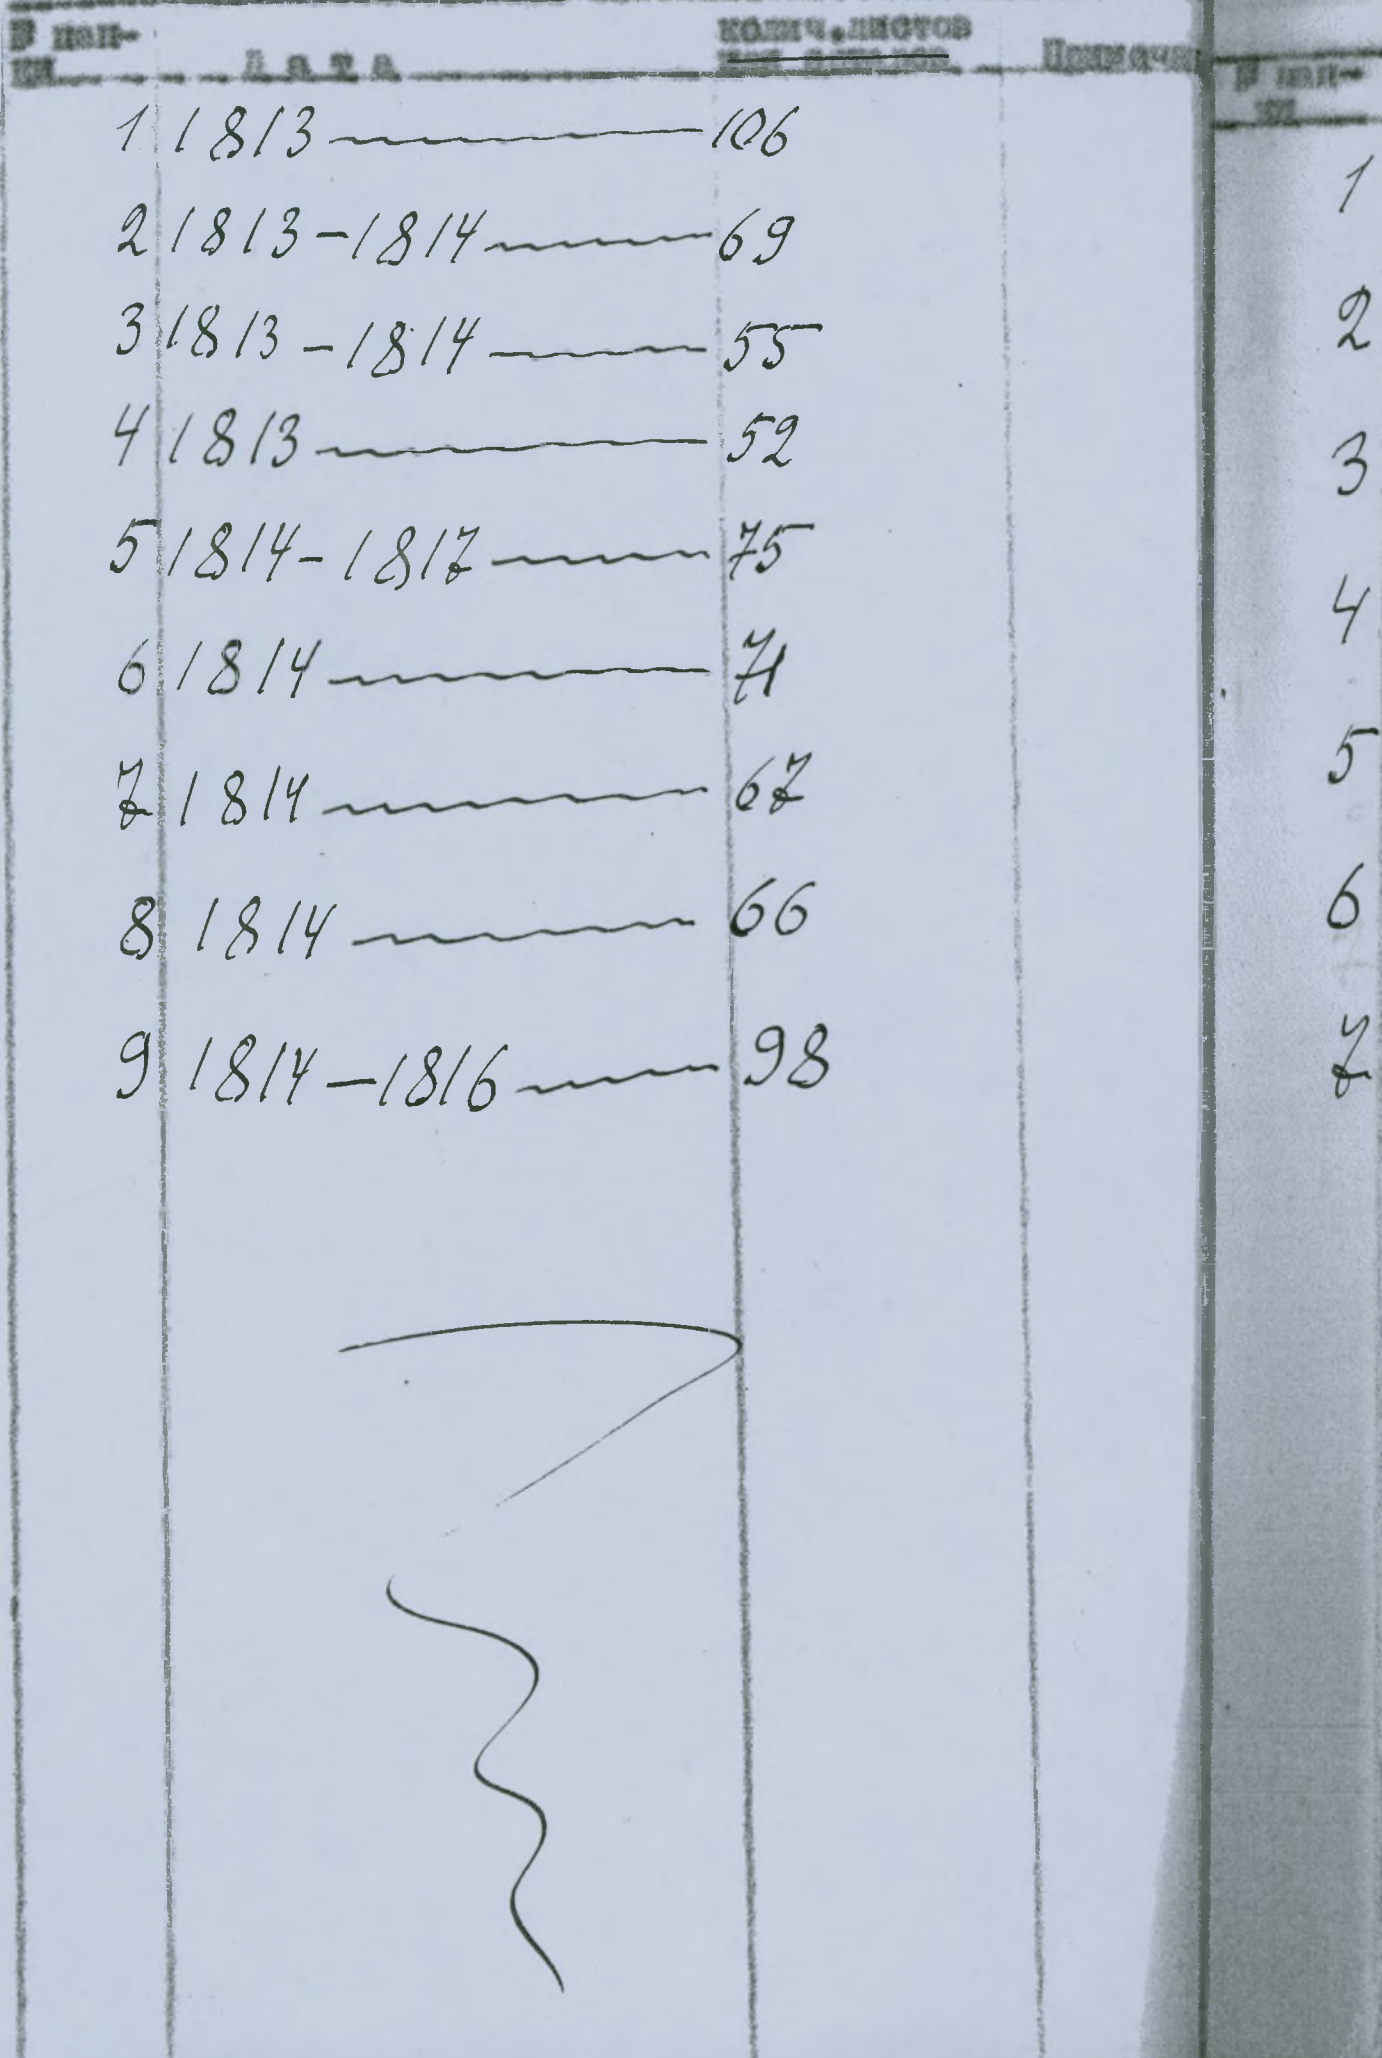 № пап-
ки Дата колич.листов Примеча
1 1813 106
2 1813-1814 69
3 1813-1814 55
4 1813 52
5 1814-1817 75
6 1814 71
7 1814 67
8 1814 66
9 1814-1816 98
№ пап-
ки
1
2
3
4
5
6
7